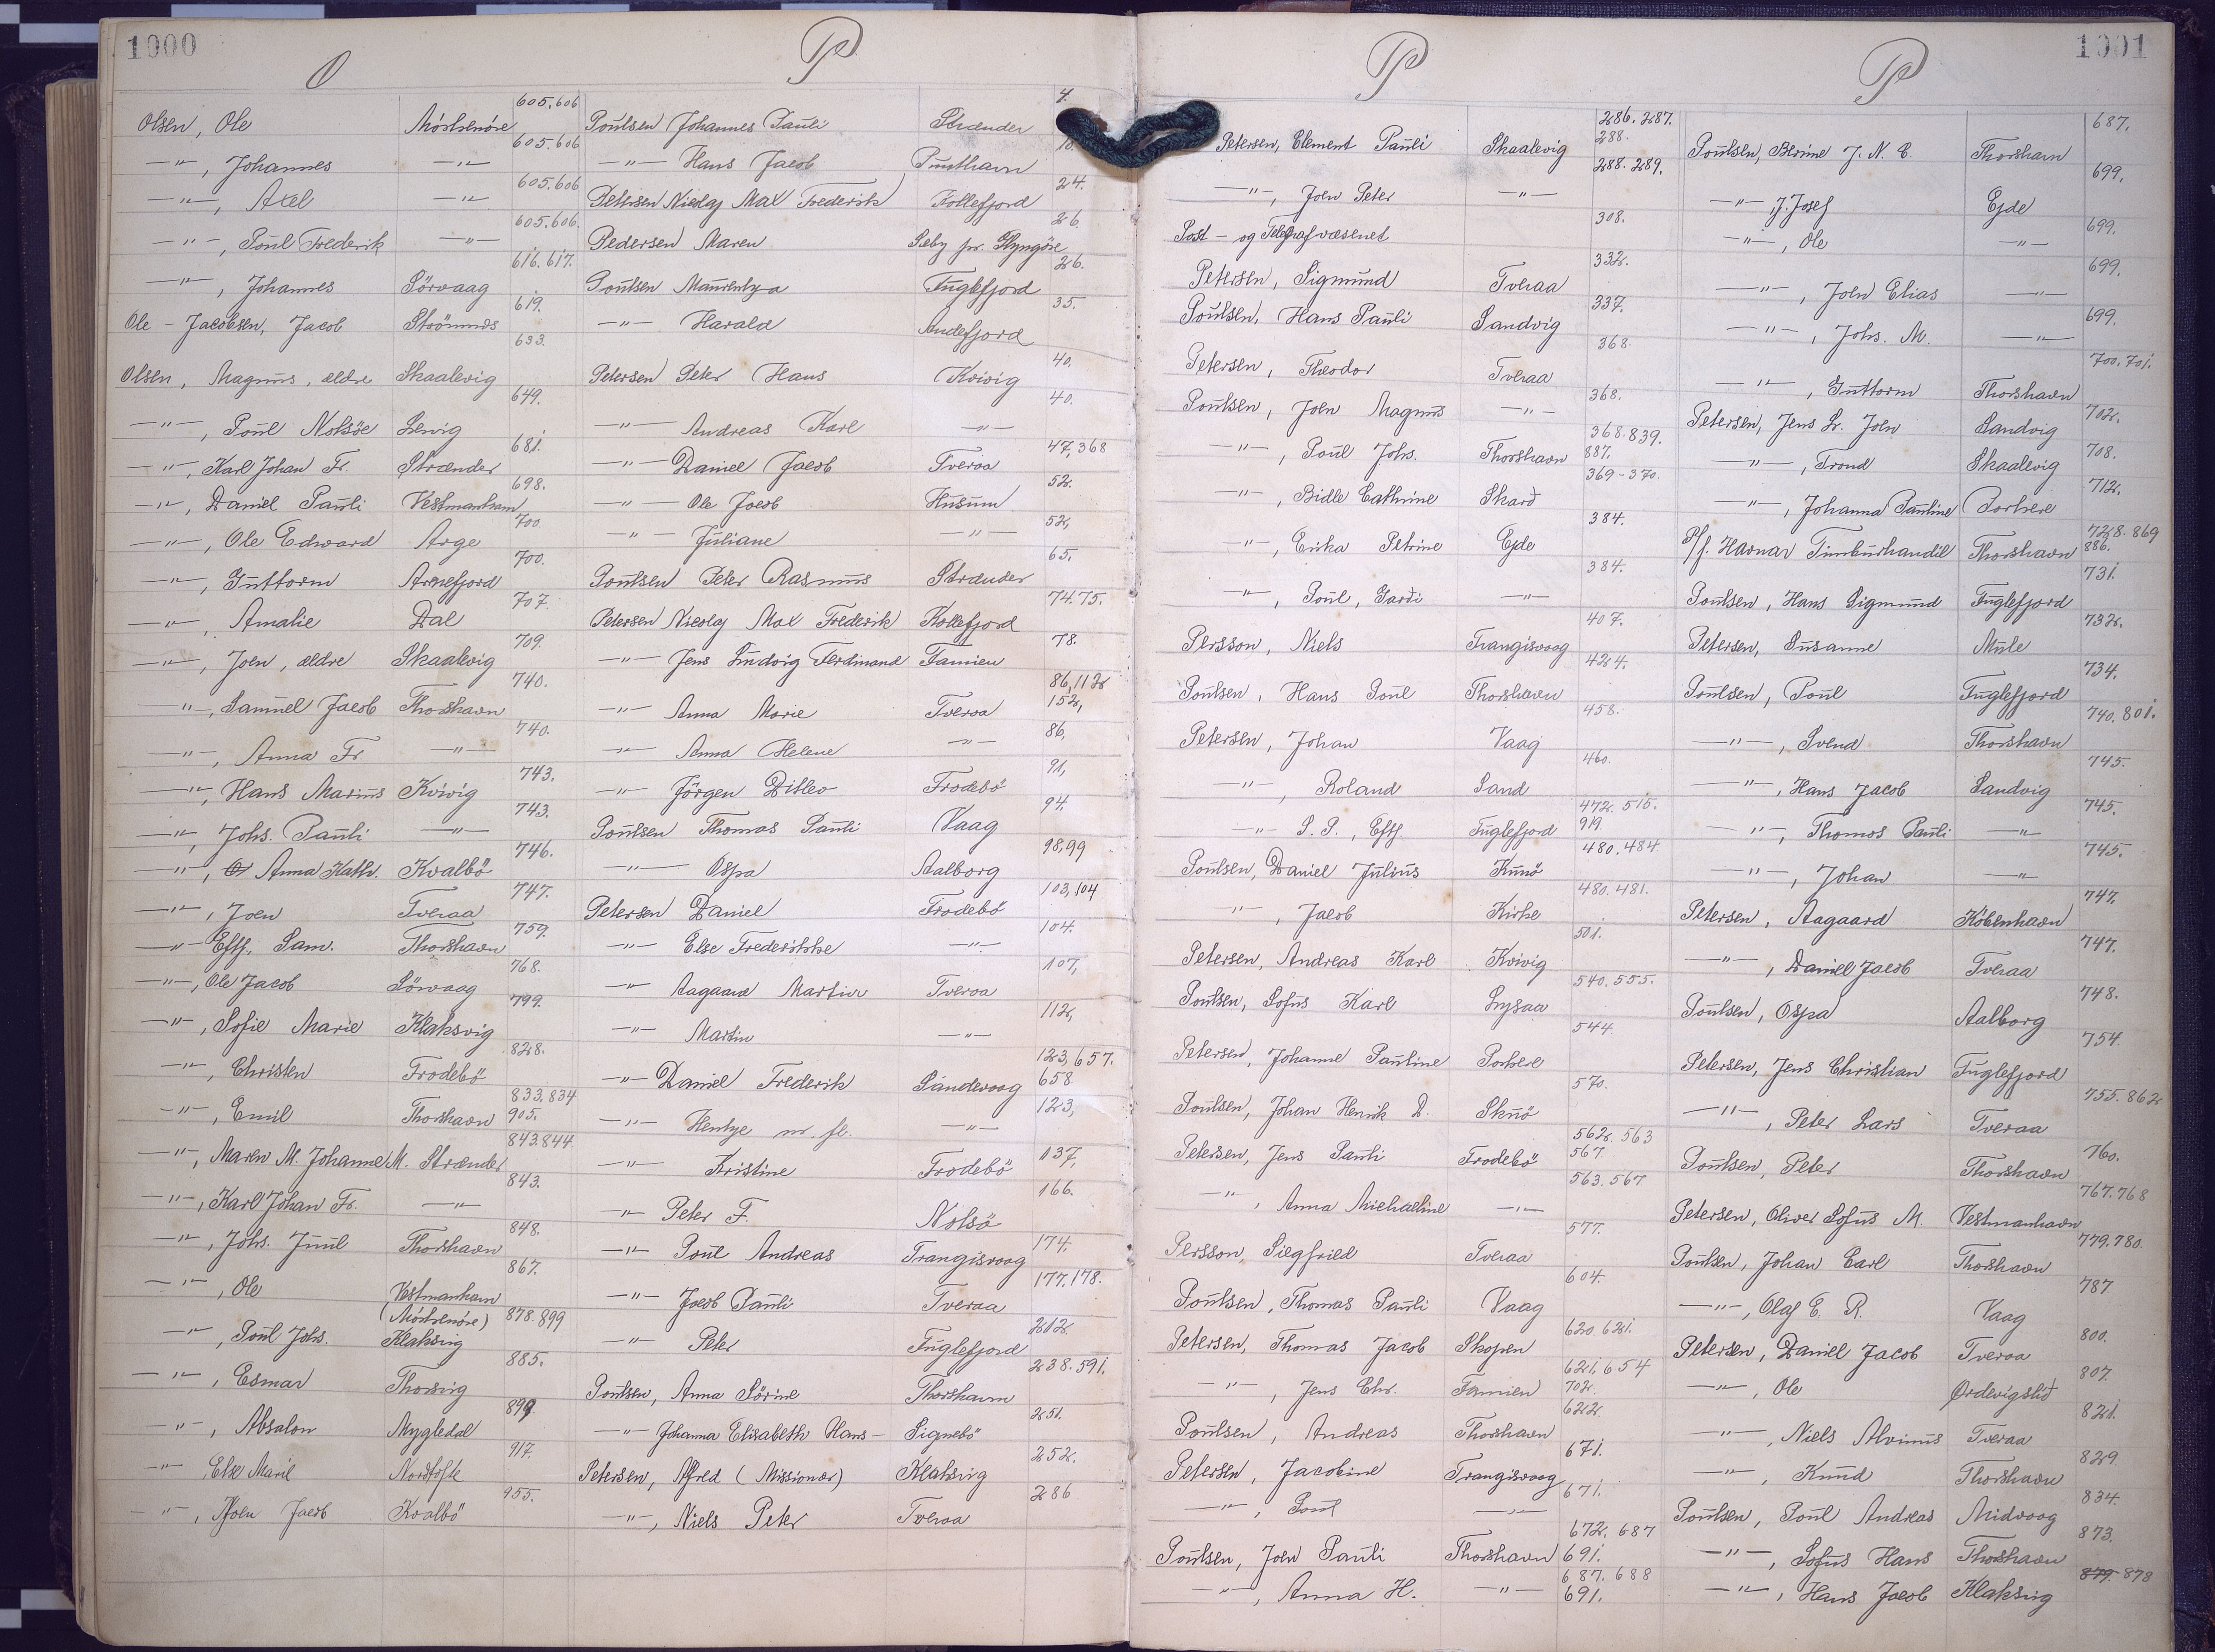 1000
O
Olsen, Ole Mörkenöre 605.606
—"—, Johannes —"— 605.606
—"—, Axel —"— 605.606
—"—, Poul Frederik —"— 605.606.
—"—, Johannes Sörvaag 616.617.
Ole-Jacobsen, Jacob Strömnæs 619.
Olsen, Magnus, ældre Skaalevig 633.
—"—, Poul Nolsöe Lervig 649.
—"—, Karl Johan Fr. Strænder 681.
—"—, Daniel Pauli Vestmanhavn 698.
—"—, Ole Edward Arge 700
—"—, Guttorm Arnefjord 700.
—"—, Amalie Dal 707.
—"—, Joen, ældre Skaalevig 709.
—"—, Samuel Jacob Thorshavn 740.
—"—, Anna Fr. —"— 740.
—"—, Hans Marius Kvivig 743.
—"—, Johs. Pauli —"— 743.
—"—, Anna Kath. Kvalbö 746.
—"—, Joen Tveraa 747.
—"— Eftf. Sam. Thorshavn 759.
—"—, Ole Jacob Sörvaag 768.
—"—, Sofie Marie Klaksvig 799.
—"—, Christen Frodebö 828.
—"—, Emil Thorshavn 833.834 905.
—"—, Maren M. Johanne M. Strænder 843.844
—"—, Karl Johan Fr. —"— 843.
—"—, Johs. Juul Thorshavn 848.
—"—, Ole Vestmanhavn (Mörkenöre) 867.
—"—, Poul Johs. Klaksvig 878.899
—"—, Esmar Thorsvig 885.
—"—, Absalon Mygledal 899.
—"—, Else Marie Nordtofte 917.
—"—, Joen Jacob Kvalbö 955.
P
Poulsen Johannes Pauli Strænder 4.
—"— Hans Jacob Funthavn 10.
Petersen Nicolaj Max Frederik Kollefjord 24.
Pedersen Maren Sæby pr. Glyngöre 26
Poulsen Maurentza Fuglefjord 26.
—"— Harald Andefjord 35.
Petersen Peter Hans Kvivig 40.
—"— Andreas Karl —"— 40.
—"— Daniel Jacob Tveraa 47,368
—"— Ole Jacob Husum 52.
—"— Juliane —"— 52,
Poulsen Peter Rasmus Strænder 65,
Petersen Nicolaj Max Frederik Kollefjord 74.75.
—"— Jens Ludvig Ferdinand Famien 78.
—"— Anna Marie Tveraa 86,112 152,
—"— Anna Helene —"— 86,
—"— Jörgen Ditlev Frodebö 91,
Poulsen Thomas Pauli Vaag 94.
—"— Ospa Aalborg 98,99
Petersen Daniel Frodebö 103,104
—"— Else Frederikke —"— 104.
—"— Aagaard Martin Tveraa 107,
—"— Martin —"— 112,
—"— Daniel Frederik Sandevaag 123,657. 658
—"— Hentze m. fl. —"— 123,
—"— Kristine Frodebö 137,
—"— Peter F. Nolsö 166.
—"— Poul Andreas Trangisvaag 174.
—"— Jacob Pauli Tveraa 177.178.
—"— Peter Fuglefjord 212
Poulsen, Anna Sörine Thorshavn 238.591.
—"— Johanna Elisabeth Hans- Signebö 251.
Petersen, Alfred (Missionær) Klaksvig 252.
—"—, Niels Peter Tveraa 286
1001
P
Petersen, Clement Pauli Skaalevig 286.287. 288.
—"—, Joen Peter —"— 288.289.
Post- og Telegrafvæsenet 308.
Petersen, Sigmund Tveraa 332.
Poulsen, Hans Pauli Sandvig 337.
Petersen, Theodor Tveraa 368.
Poulsen, Joen Magnus —"— 368.
—"—, Poul Johs. Thorshavn 368.839. 887.
—"—, Bidle Cathrine Skarð 369-370.
—"—, Erika Petrine Ejde 384.
—"—, Poul, Garði —"— 384.
Persson, Niels Trangisvaag 407.
Poulsen, Hans Poul Thorshavn 424.
Petersen, Johan Vaag 458.
—"—, Roland Sand 460.
—"— S. P., Eftf. Fuglefjord 472.515. 919.
Poulsen, Daniel Julius Kunö 480.484
—"—, Jacob Kirke 480.481.
Petersen, Andreas Karl Kvivig 501.
Poulsen, Sofus Karl Lysaa 540.555.
Petersen, Johanne Pauline Porkere 544.
Poulsen, Johan Henrik D. Skuö 570.
Petersen, Jens Pauli Frodebö 562.563 567.
—"—, Anna Michaeline —"— 563.567
Persson, Siegfried Tveraa 577.
Poulsen, Thomas Pauli Vaag 604.
Petersen, Thomas Jacob Skopen 620.621.
—"—, Jens Chr. Famien 621,654 702.
Poulsen, Andreas Thorshavn 622
Petersen, Jacobine Trangisvaag 671.
—"—, Poul —"— 671.
Poulsen, Joen Pauli Thorshavn 672.687 691.
—"—, Anna H. —"— 687.688 691.
P
Poulsen, Berine J. N. C. Thorshavn 687,
—"— J. Josef Ejde 699.
—"—, Ole —"— 699.
—"—, Joen Elias —"— 699.
—"—, Johs. M. —"— 699.
—"—, Guttorm Thorshavn 700.701.
Petersen, Jens Sr. Joen Sandvig 702.
—"—, Trond Skaalevig 708.
—"—, Johanna Pauline Porkere 712.
P/f. Havnar Timburhandil Thorshavn 728.869 886.
Poulsen, Hans Sigmund Fuglefjord 731.
Petersen, Susanne Mule 732.
Poulsen, Poul Fuglefjord 734.
—"—, Svend Thorshavn 740.801.
—"—, Hans Jacob Sandvig 745.
—"—, Thomas Pauli —"— 745.
—"—, Johan —"— 745.
Petersen, Aagaard Köbenhavn 747.
—"—, Daniel Jacob Tveraa 747.
Poulsen, Ospa Aalborg 748.
Petersen, Jens Christian Fuglefjord 754
—"—, Peter Lars Tveraa 755.862
Poulsen, Peter Thorshavn 760.
Petersen, Oliver Sofus M. Vestmanhavn 767.768
Poulsen, Johan Carl Thorshavn 779.780.
—"—, Olaf E. R. Vaag 787
Petersen, Daniel Jacob Tveraa 800.
—"—, Ole Ördevigslið 807.
—"—, Niels Alvinus Tveraa 821.
—"—, Knud Thorshavn 829.
Poulsen, Poul Andreas Midvaag 834.
—"—, Sofus Hans Thorshavn 873.
—"—, Hans Jacob Klaksvig 879. 878